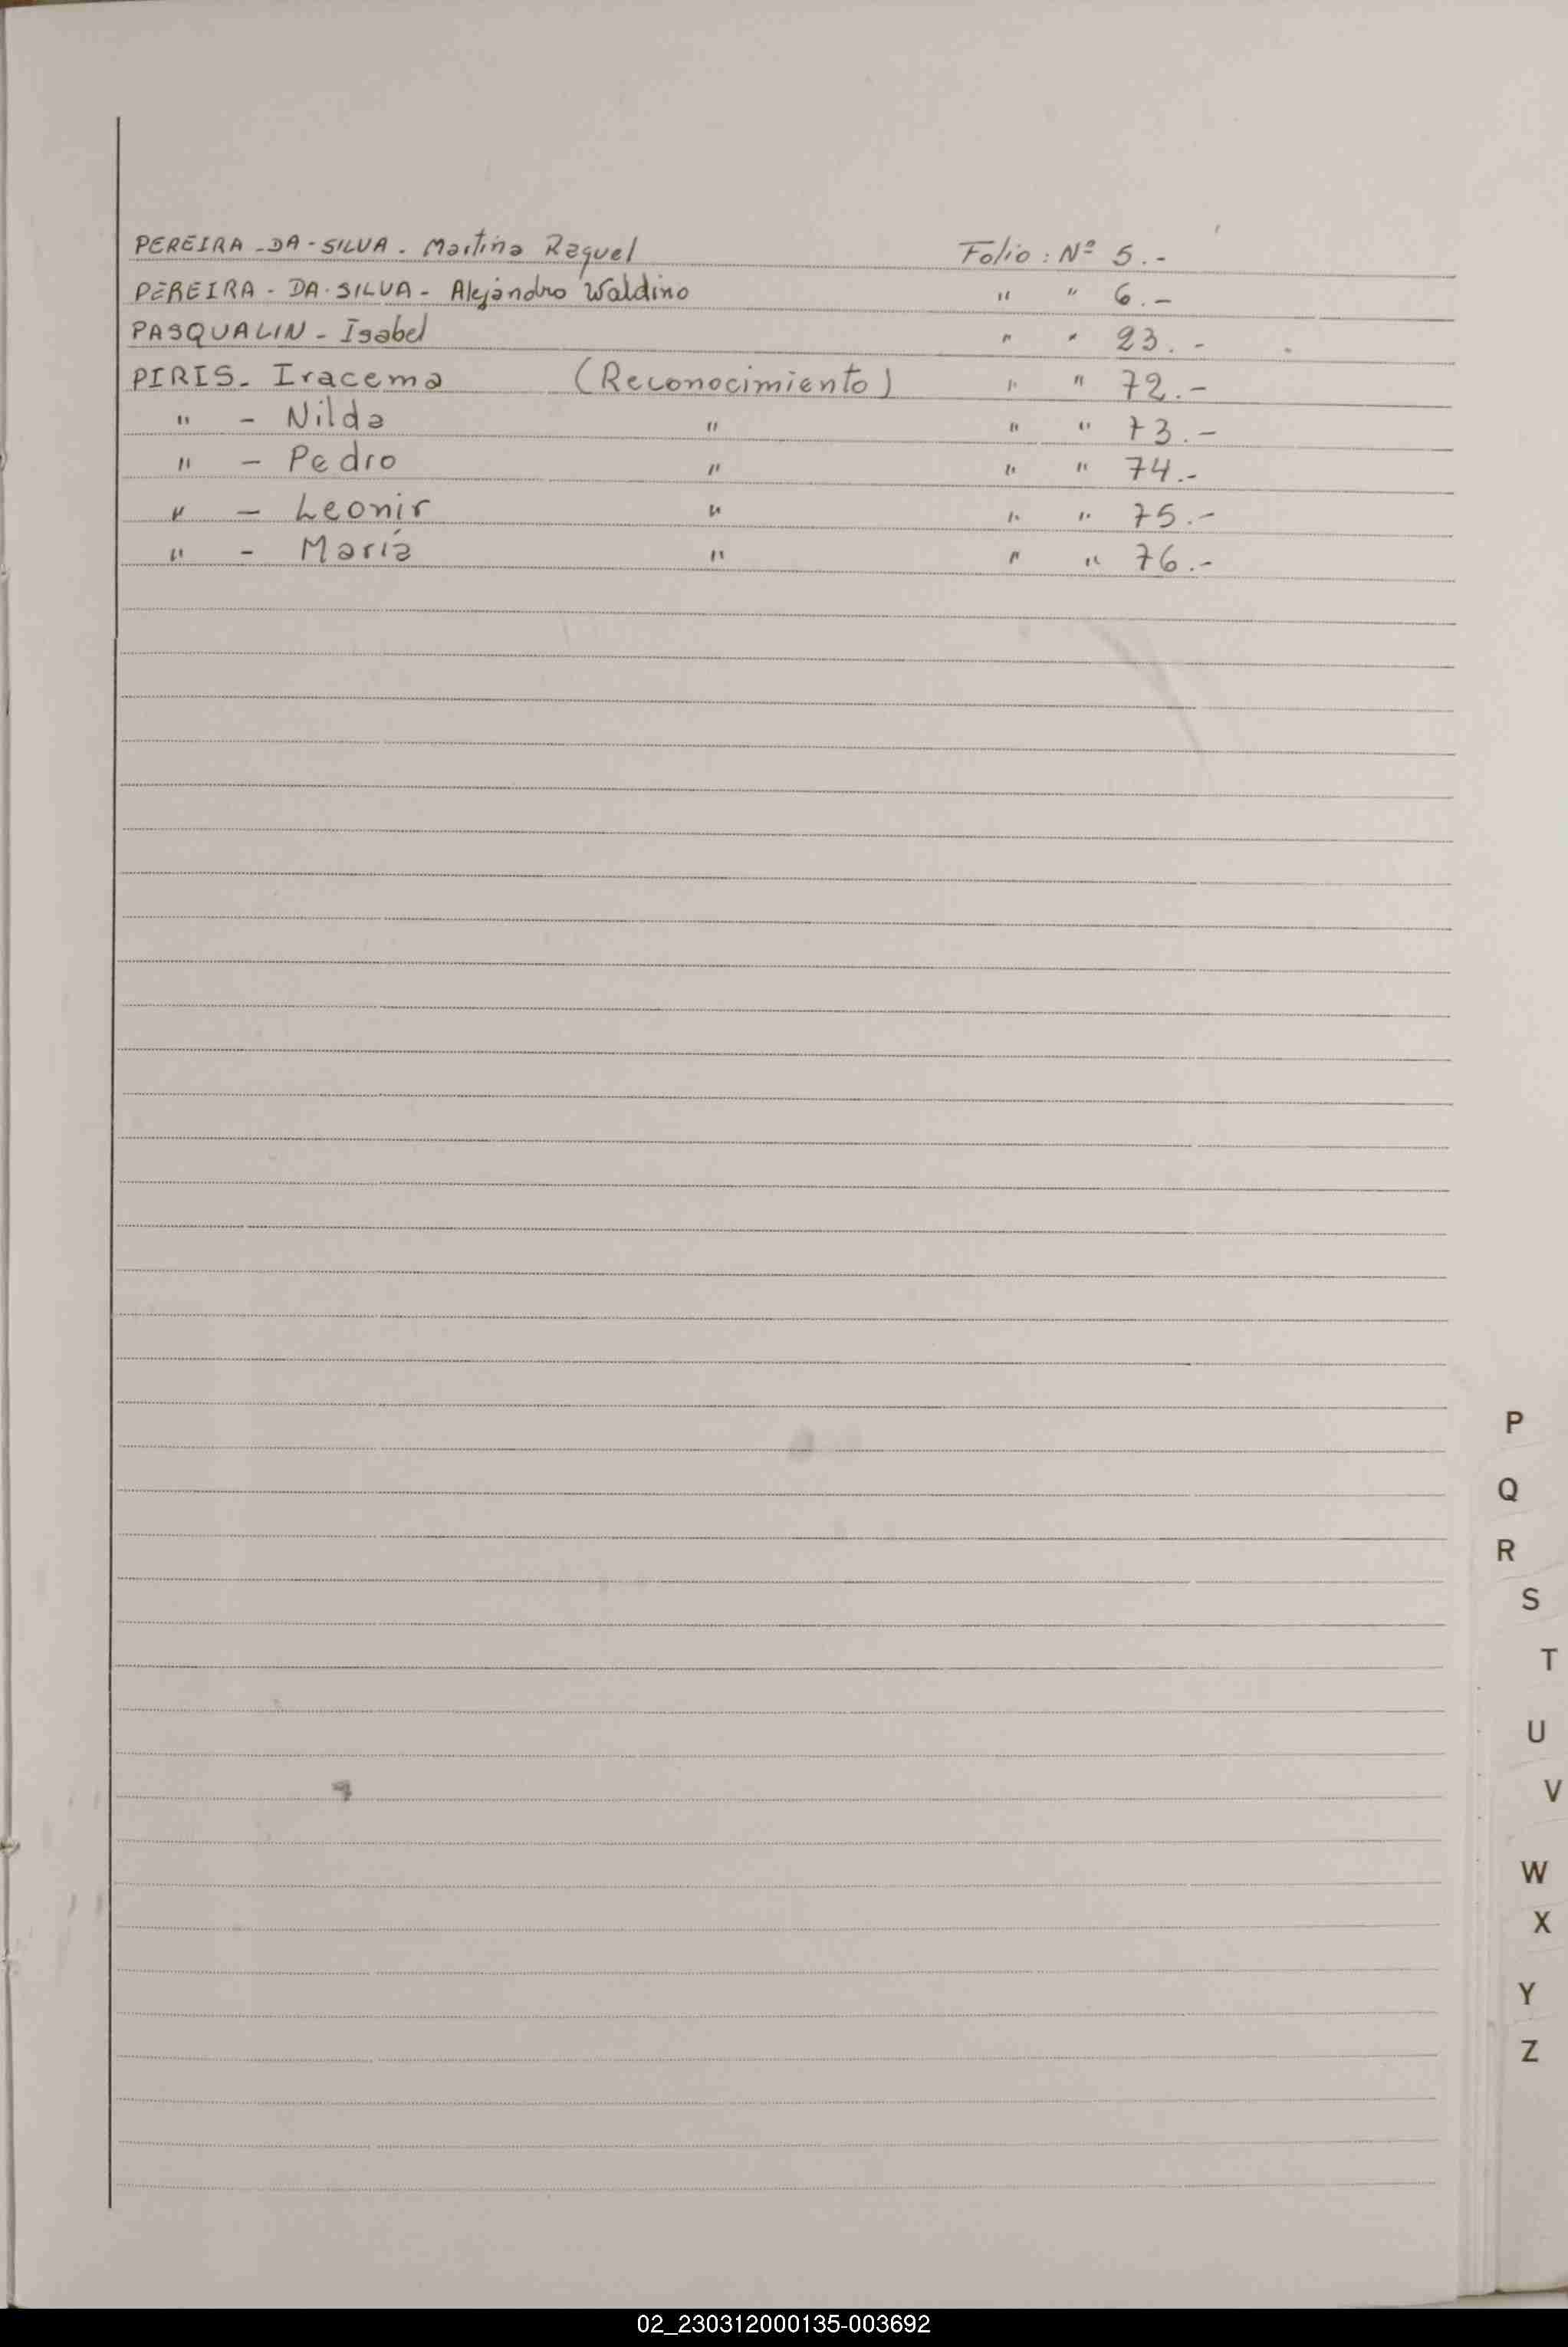 PEREIRA - DA - SILVA - Martina Raquel Folio : Nº 5.-
PEREIRA - DA - SILVA - Alejandro Waldino " " 6.-
PASQUALIN - Isabel " " 23.-
PIRIS - Iracema (Reconocimiento) " " 72.-
" - Nilda " " " 73.-
" - Pedro " " " 74.-
" - Leonir " " " 75.-
" - María " " " 76.-
P
Q
R
S
T
U
V
W
X
Y
Z
02_230312000135-003692